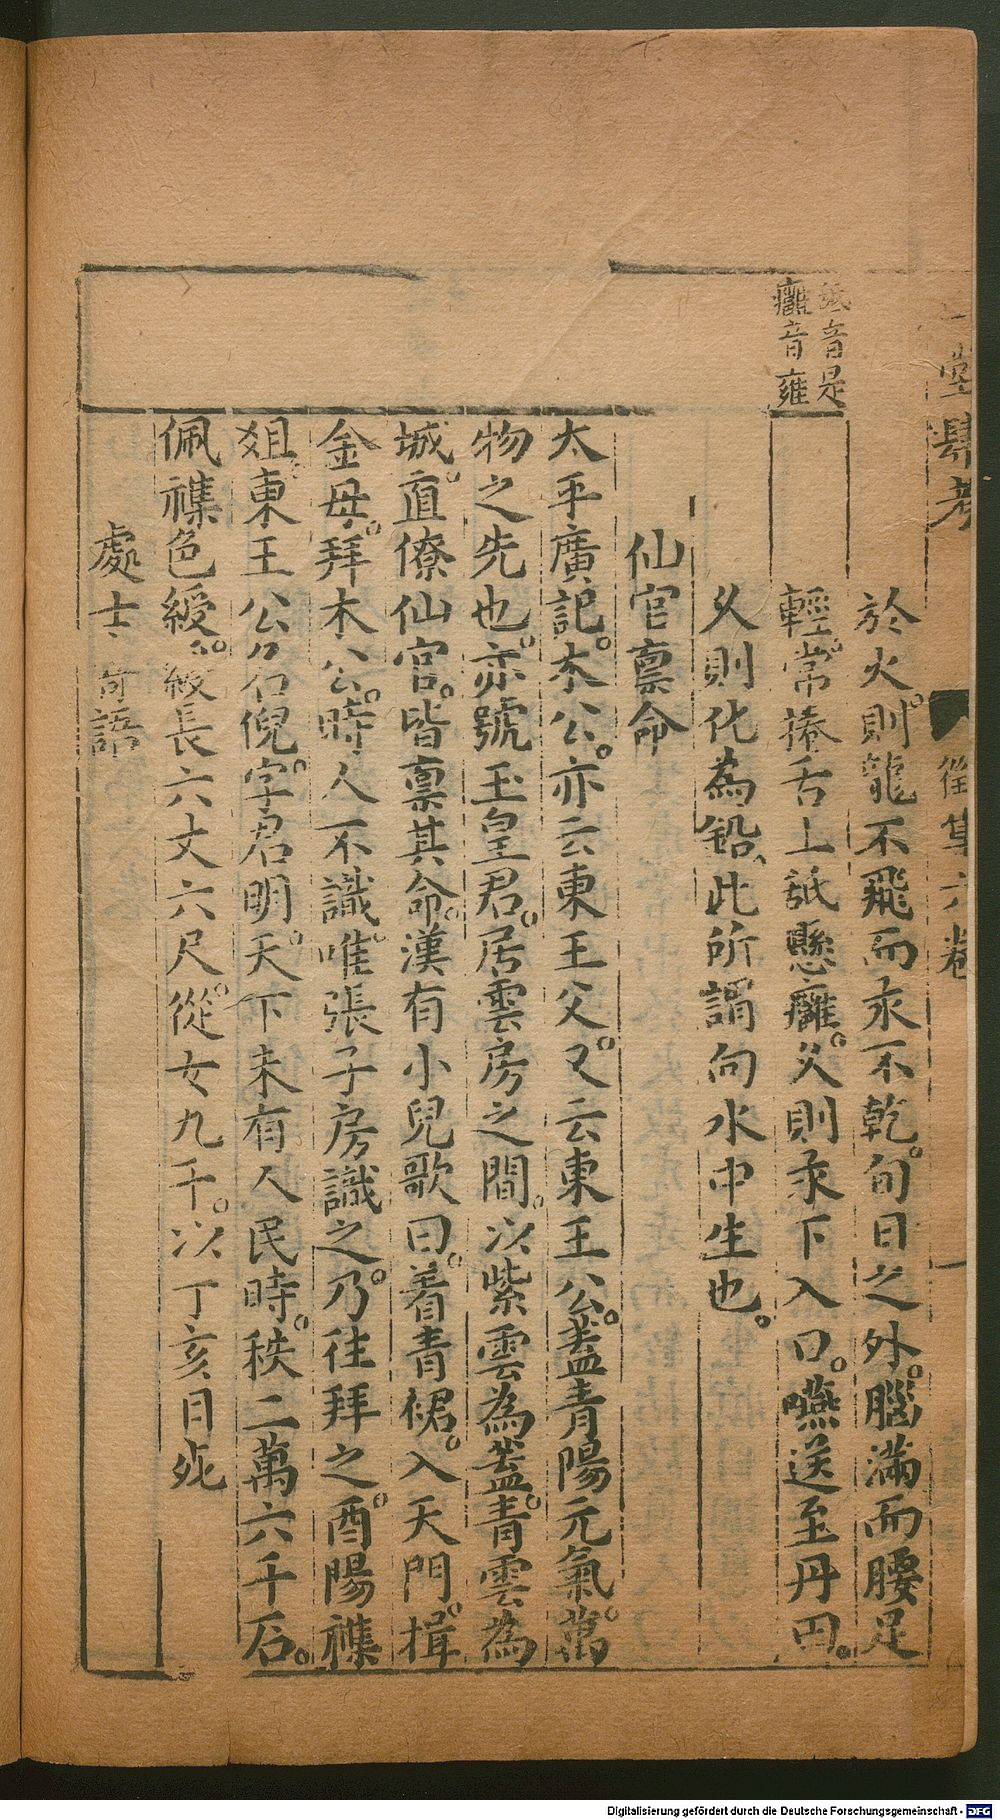 堂肆考
徵集六卷
於火。則龍不飛而汞不乾。旬日之外。腦滿而腰足
舐音是
癰音雍
輕。常捲舌上舐懸癰。久則汞下入口。嚥送至丹田。
久則化為鉛、此所謂向水中生也。
仙官禀命
太平廣記。木公。亦云東王父。又云東王公。蓋青陽元氣。萬
物之先也。亦號玉皇君。居雲房之間。以紫雲為蓋。青雲為
城。直僚仙官。皆禀其命。漢有小兒歌曰。着青裙。入天門。揖
金母。拜木公。時人不識。唯張子房識之。乃往拜之。酉陽襍
俎。東王公名倪。字君明。天下未有人民時。秩二萬六千石。
佩襍色綬。綬長六丈六尺。從女九千。以丁亥日死
處士奇語
Digitalisierung gefördert durch die Deutsche Forschungsgemeinschaft - DFG